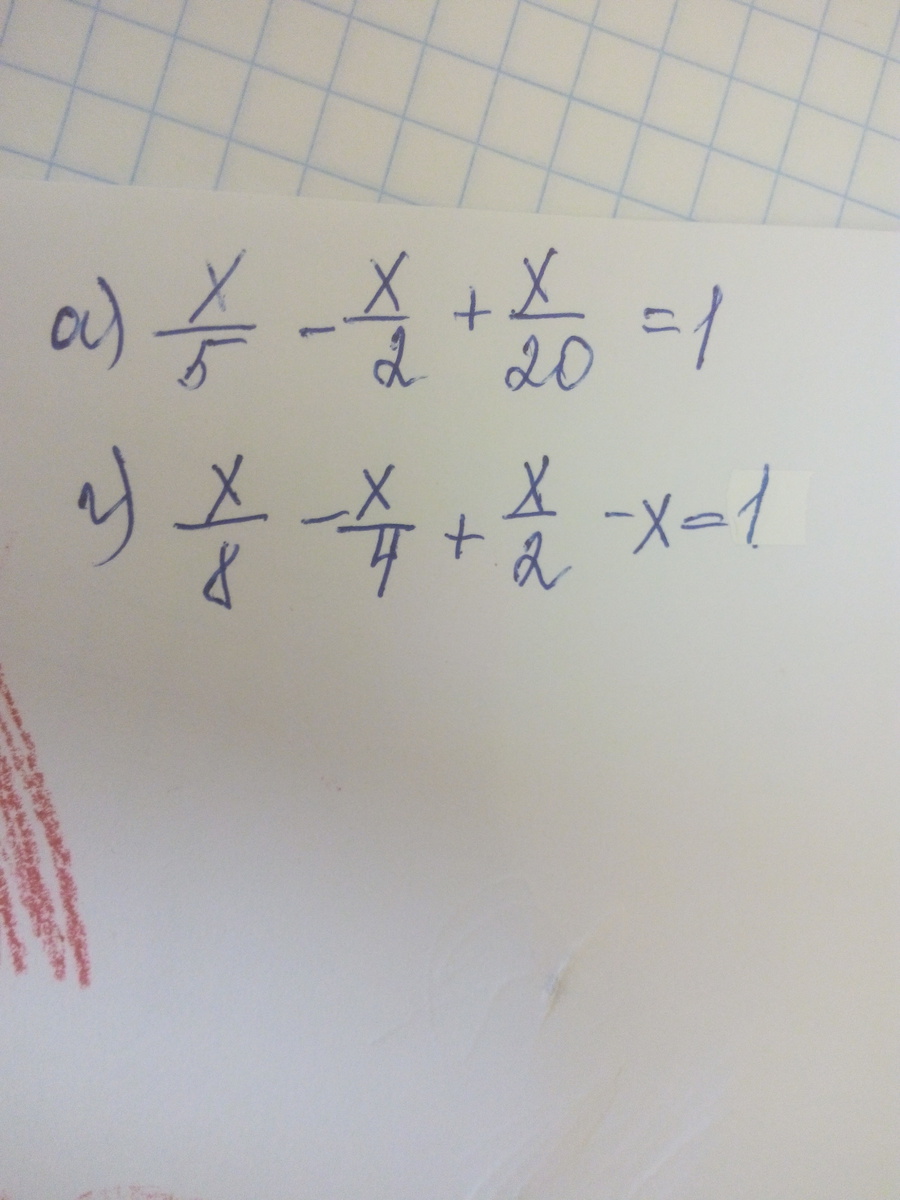 а) x/5 - x/2 + x/20 = 1
г) x/8 - x/4 + x/2 - x = 1